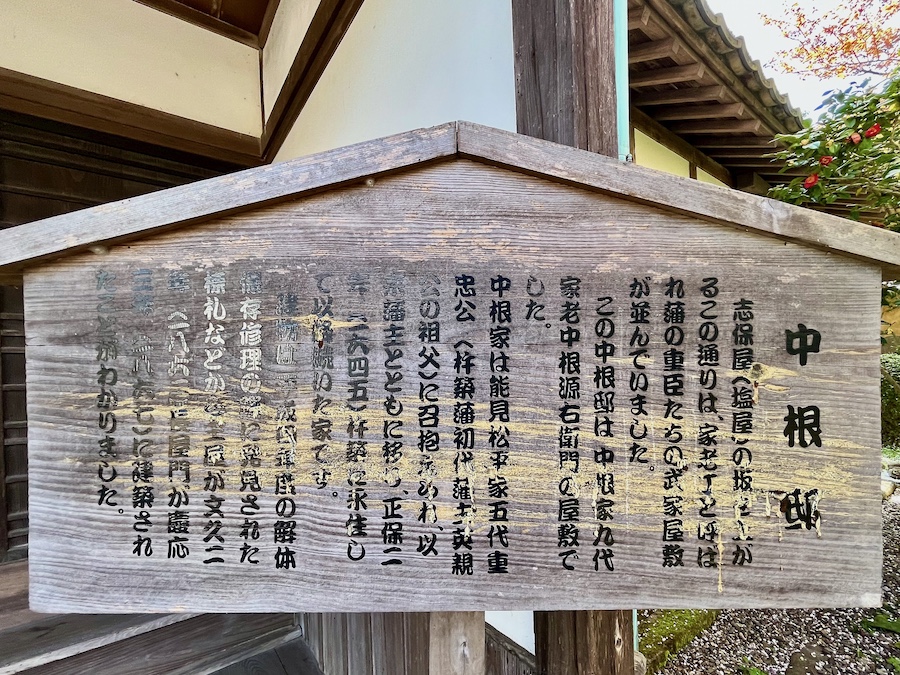 中根邸
志保屋(塩屋)の坂を上が
るこの通りは、家老丁と呼ば
れ藩の重臣たちの武家屋敷
が並んでいました。
この中根邸は中根家九代
家老中根源右衛門の屋敷で
した。
中根家は能見松平家五代重
忠公(杵築藩初代藩主英親
公の祖父)に召抱えられ、以
藩士とともに移り、正保二
年(一六四五)杵築に永住し
て以降続いた家です。
建物は、平成四年度の解体
保存修理の際に発見された
棟札などから主屋が文久二
年(一八六二)長屋門が慶応
に建築され
たことがわかりました。